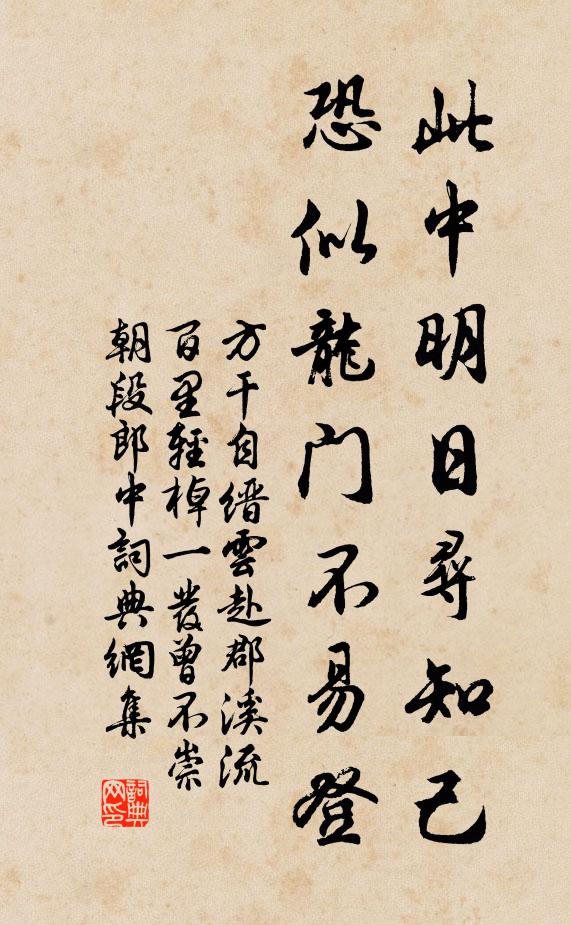 此中明日尋知己
恐似龍门不易登
方干自縉雲赴郡溪流
百里輕棹一發曾不崇
朝段郎中詞典網集
詞典
网印